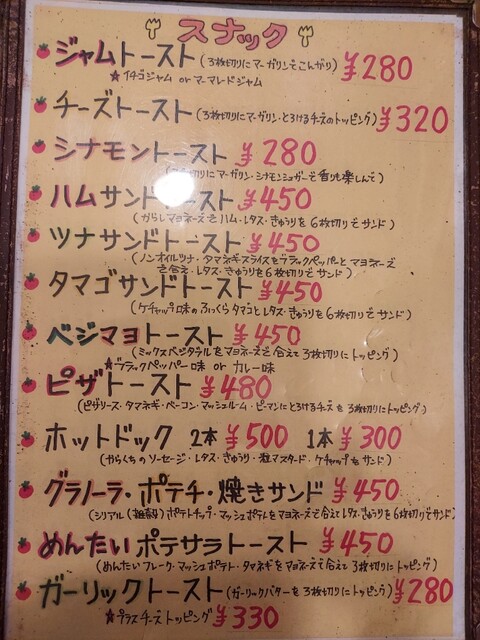 スナック
ジャムトースト(3枚切りにマーガリンでこんがり) ¥280
★イチゴジャム or マーマレードジャム
チーズトースト(3枚切りにマーガリン・とろけるチーズのトッピング) ¥320
シナモントースト ¥280
マーガリン・シナモンシュガーで香りも楽しんで)
ハムサンドトースト ¥450
(からしマヨネーズでハム・レタス・きゅうりを6枚切りでサンド)
ツナサンドトースト ¥450
(ノンオイルツナ・タマネギスライスをブラックペッパーとマヨネーズ
で合え・レタス・きゅうりを6枚切りでサンド)
タマゴサンドトースト ¥450
(ケチャップ味のふっくらタマゴとレタス・きゅうりを6枚切りでサンド)
ベジマヨトースト ¥450
(ミックスベジタブルをマヨネーズで合えて3枚切りにトッピング)
★ブラックペッパー味 or カレー味
ピザトースト ¥480
(ピザソース・タマネギ・ベーコン・マッシュルーム・ピーマンにとろけるチーズを3枚切りにトッピング)
ホットドック 2本 ¥500 1本 ¥300
(やらくちのソーセージ・レタス・きゅうり・粒マスタード・ケチャップをサンド)
グラノーラ・ポテチ・焼きサンド ¥450
(シリアル(雑穀)ポテトチップ・マッシュポテトをマヨネーズで合えてレタス・きゅうりを6枚切りでサンド)
めんたいポテサラトースト ¥450
(めんたいフレーク・マッシュポテト・タマネギをマヨネーズで合えて3枚切りにトッピング)
ガーリックトースト(ガーリックバターを3枚切りにトッピング) ¥280
★プラスチーズトッピング ¥330